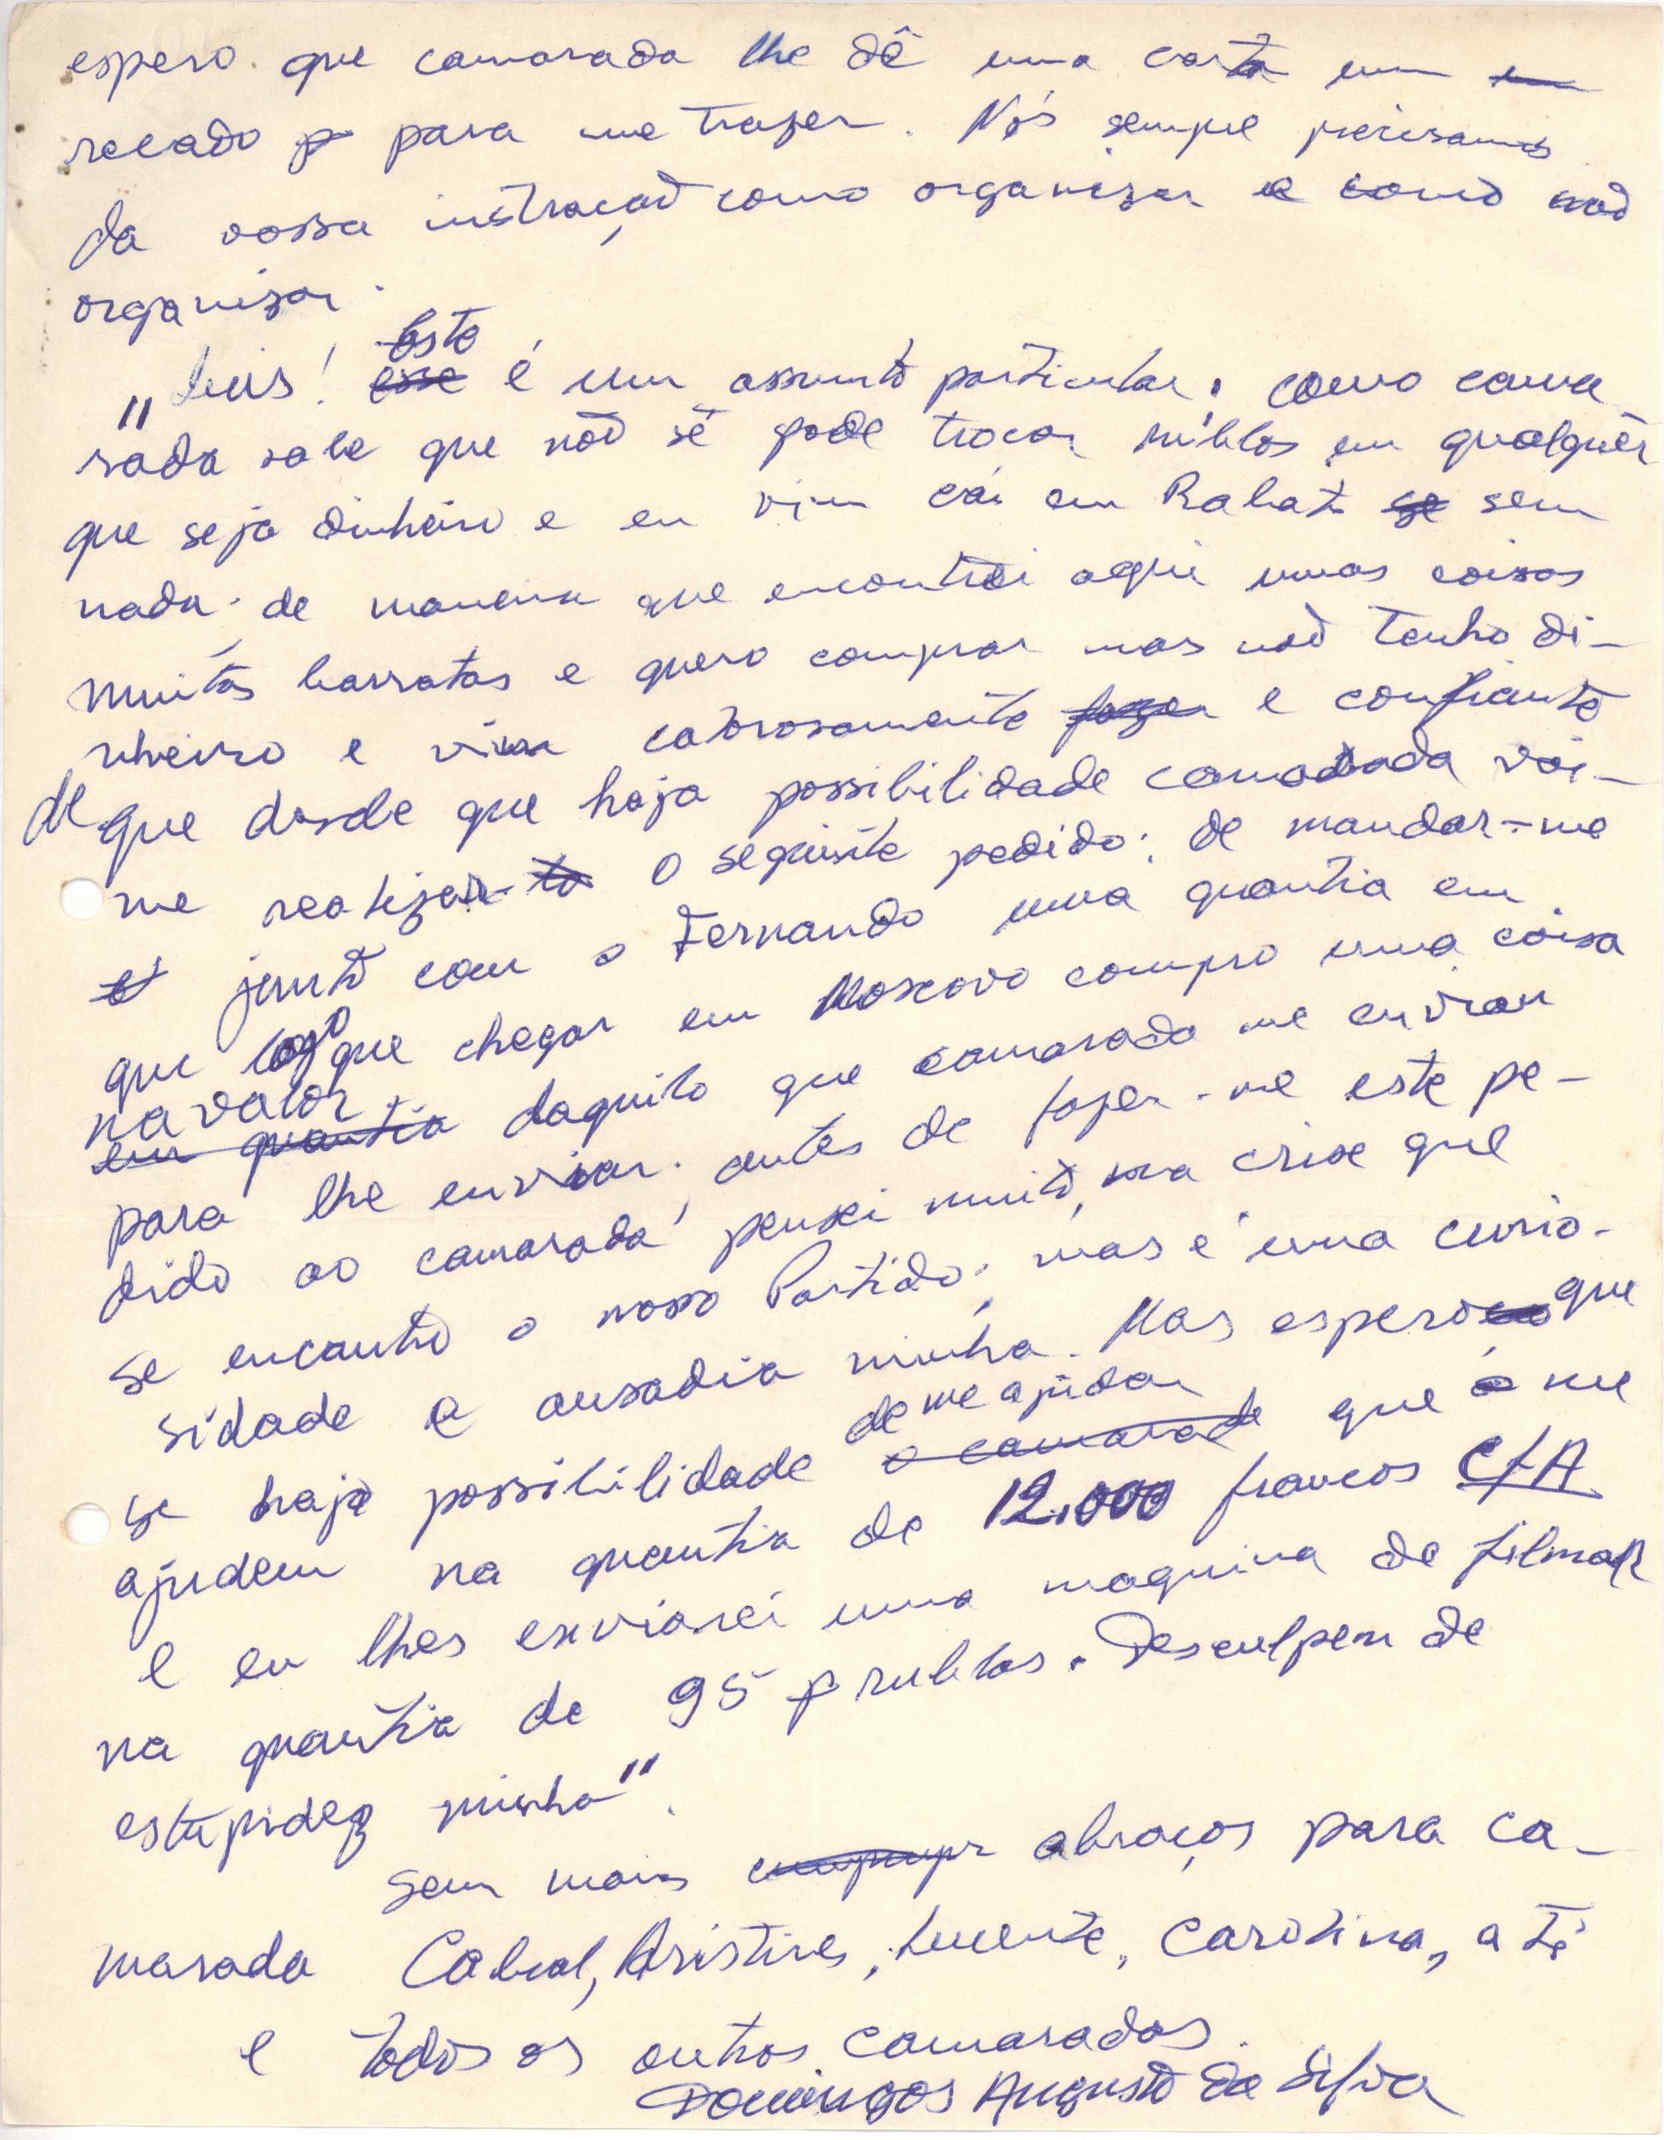 espero que camarada lhe dê uma carta um
recado para me trazer. Nós sempre precisamos
da vossa instração como organizar e como não
organizar.
"Luis! Este é um assunto particular. como cama
rada sabe que não sê pode trocar rublos em qualquér
que seja dinheiro e eu vim cái em Rabat sem
nada. de maneira que encontrei aqui umas coisas
muitas barratas e quero comprar mas não tenho di-
nheiro e vim calorosamente e confiante
de que desde que haja possibilidade camarada vai-
me realizar o seguinte pedido: de mandar-me
junto com o Fernando uma quantia em
que logo que chegar em Moscovo compro uma coisa
na valor daquilo que camarada me enviar
para lhe enviar. antes de fazer-me este pe-
dido ao camarada pensei muito, na crise que
se encontro o nosso Partido, mas é uma curio-
sidade e ousadia minha. Mas espero que
se haja possibilidade de me ajudar que me
ajudem na quantia de 12.000 francos CFA
e eu lhes enviarei uma maquina de filmar
na quantia de 95 rublos. Desculpem de
estupidez minha".
Sem mais abraços para ca-
marada Cabral, Aristires, Lucente, Carolina, a ti
e todos os outros camaradas.
Domingos Augusto da Silva